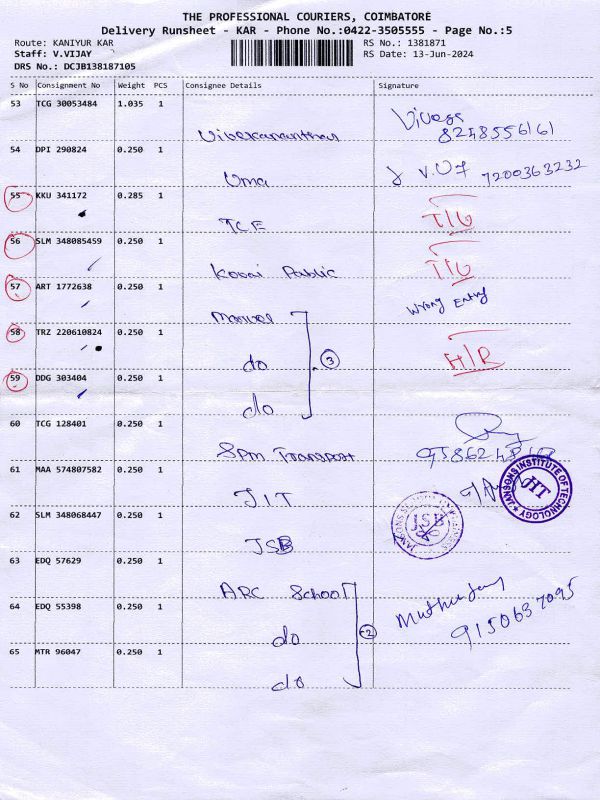 THE PROFESSIONAL COURIERS, COIMBATORE
Delivery Runsheet - KAR - Phone No.:0422-3505555 - Page No.:5
Route: KANIYUR KAR RS No.: 1381871
Staff: V.VIJAY RS Date: 13-Jun-2024
DRS No.: DCJB138187105
S No Consignment No Weight PCS Consignee Details Signature
53 TCG 30053484 1.035 1
Vivekananthan 8248556161
54 DPI 290824 0.250 1
Uma 7200363232
55 KKU 341172 0.285 1
TCE
56 SLM 348085459 0.250 1
Kovai Public
57 ART 1772638 0.250 1
Wrong Entry
58 TRZ 220610824 0.250 1
do 3 H/R
59 DDG 303404 0.250 1
do
60 TCG 128401 0.250 1
SPM Transport
61 MAA 574807582 0.250 1
JIT
JANSONS INSTITUTE OF TECHNOLOGY
JIT
62 SLM 348068447 0.250 1
JSB
JSB
63 EDQ 57629 0.250 1
ARC School
64 EDQ 55398 0.250 1
do 2 9150637095
65 MTR 96047 0.250 1
do